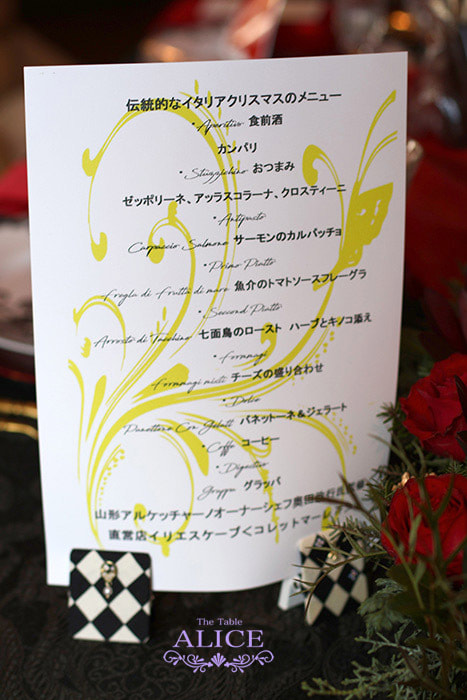 伝統的なイタリアクリスマスのメニュー
・Aperitivo 食前酒
カンパリ
・Stuggichino おつまみ
ゼッポリーネ、アッラスコラーナ、クロスティーニ
・Antipasto
Carpaccio Salmone サーモンのカルパッチョ
・Primo Piatto
fregla di frutta di mare 魚介のトマトソースフレーグラ
・Seccond Piatto
Arrosto di Tacchino 七面鳥のロースト ハーブとキノコ添え
・Formmagi
Formmagi misti チーズの盛り合わせ
・Dolce
Panettone Con Gelatti パネットーネ&ジェラート
・Caffe コーヒー
・Digestivo
Grappa グラッパ
山形アルケッチャーノオーナーシェフ奥田
直営店イリエスケープ<コレットマーレ
The Table
ALICE